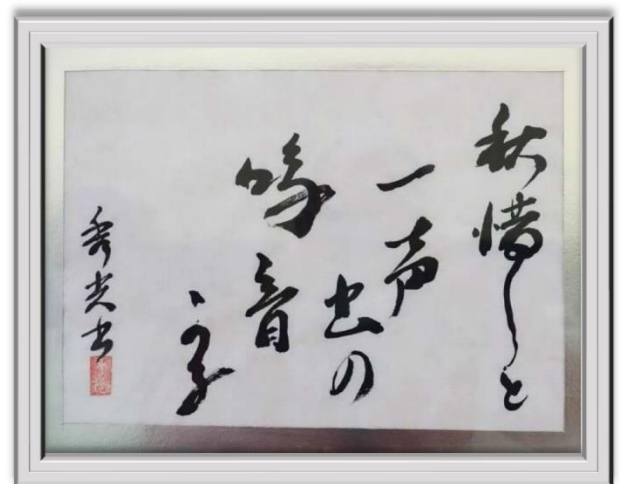 秋惜しと
一声
虫の
鳴音
かな
秀光書